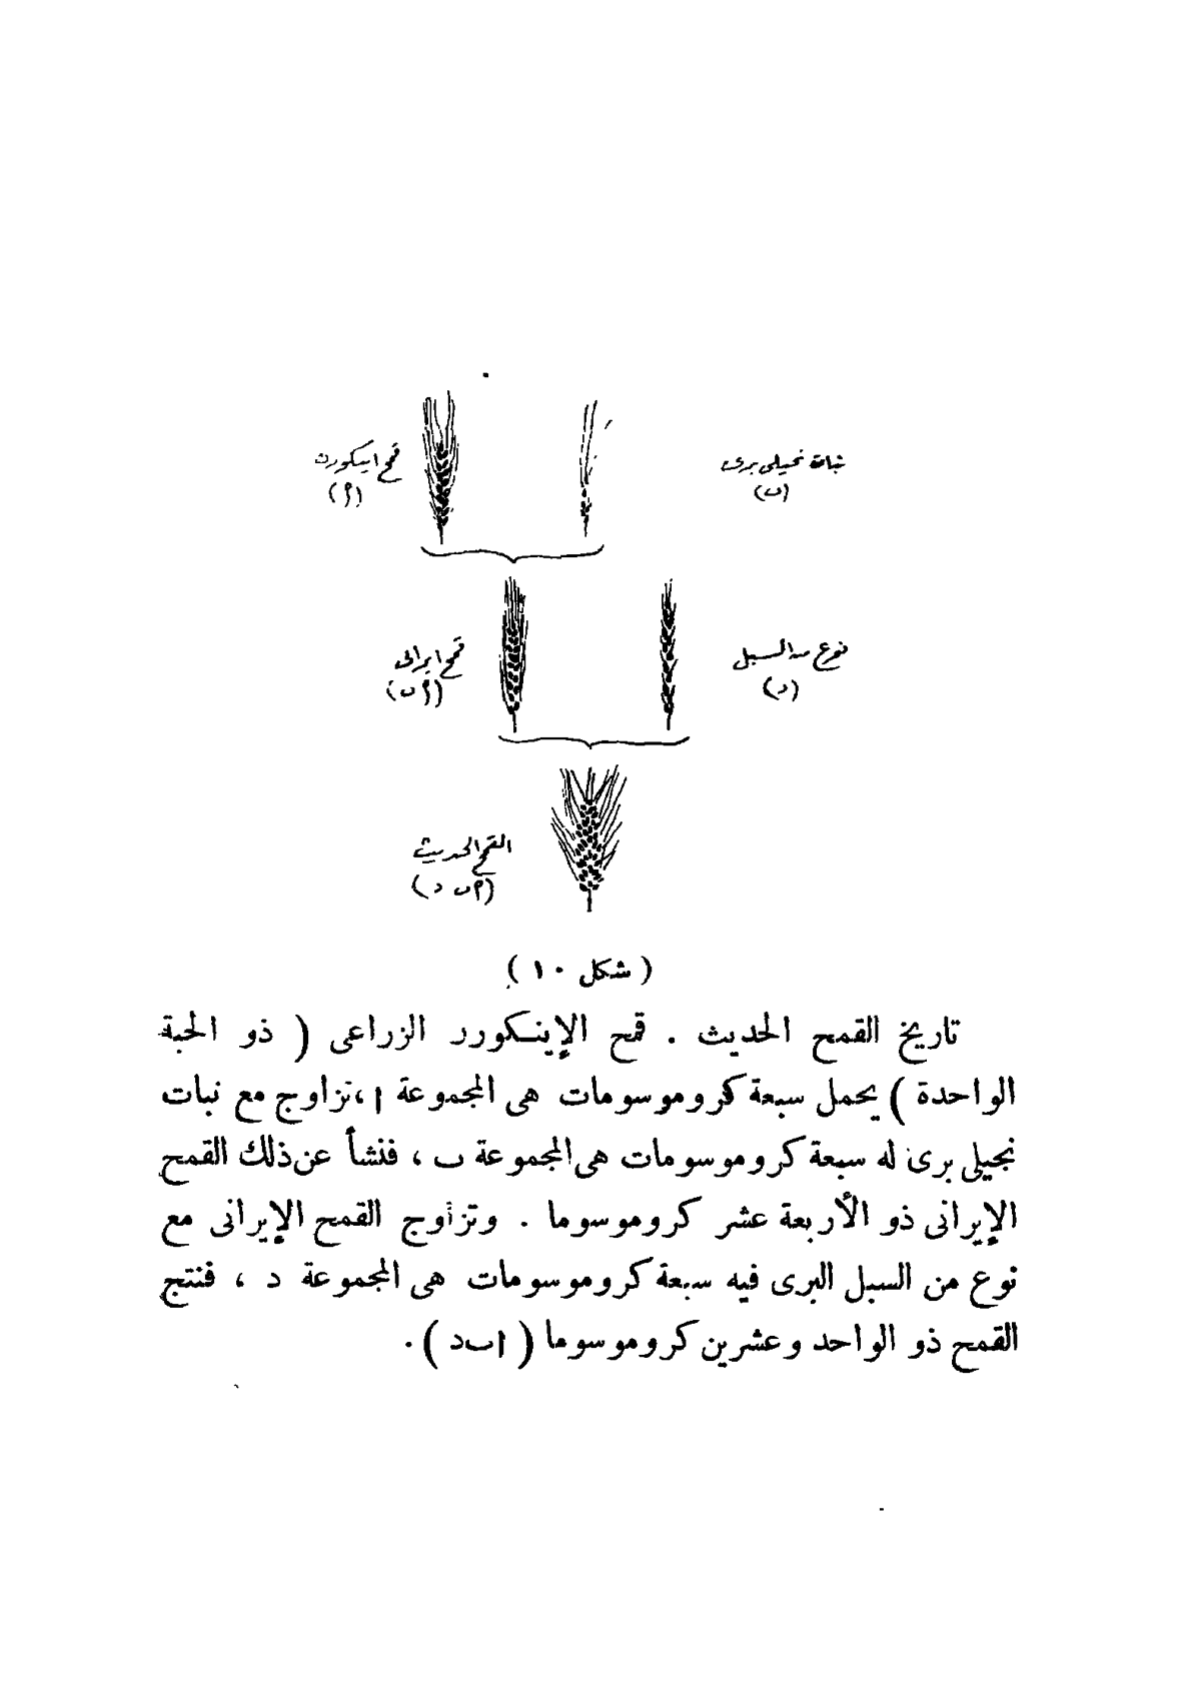 نبات نجيلى برى
(ب)
قمح اينكورن
(ا)
نوع من السبل
(د)
قمح ايرانى
(ا ب)
القمح الحديث
(ا ب د)
( شكل ١٠ )
تاريخ القمح الحديث . قمح الإينكورر الزراعى ( ذو الحبة
الواحدة ) يحمل سبعة كروموسومات هى المجموعة ا ، تزاوج مع نبات
نجيلى برى له سبعة كروموسومات هى المجموعة ب ، فنشأ عن ذلك القمح
الإيرانى ذو الأربعة عشر كروموسوما . وتزاوج القمح الإيرانى مع
نوع من السبل البرى فيه سبعة كروموسومات هى المجموعة د ، فنتج
القمح ذو الواحد وعشرين كروموسوما ( ا ب د ) .